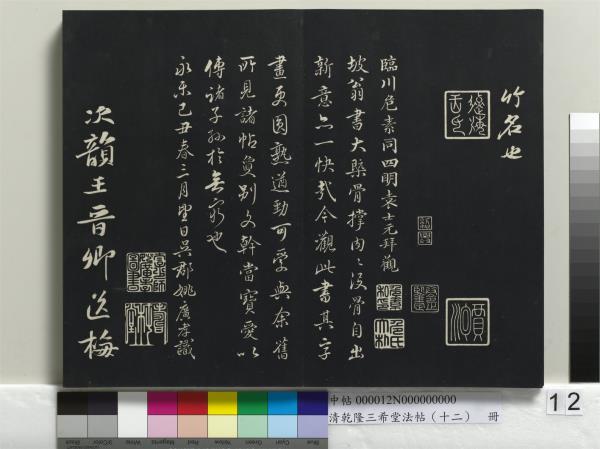 竹名也
臨川危素同四明袁士元拜觀
坡翁書大槩骨撑肉肉沒骨自出
新意亦一快哉今觀此書其字
畫更圓熟遒勁可學與余舊
所見諸帖夐別文幹當寶愛以
傳諸子孫於無窮也
永樂己丑春三月望日吳郡姚廣孝識
次韻王晉卿送梅
中帖 000012N000000000
清乾隆三希堂法帖（十二） 冊
12
Blue
Cyan
Green
Yellow
Red
Magenta
White
3/Color
Black